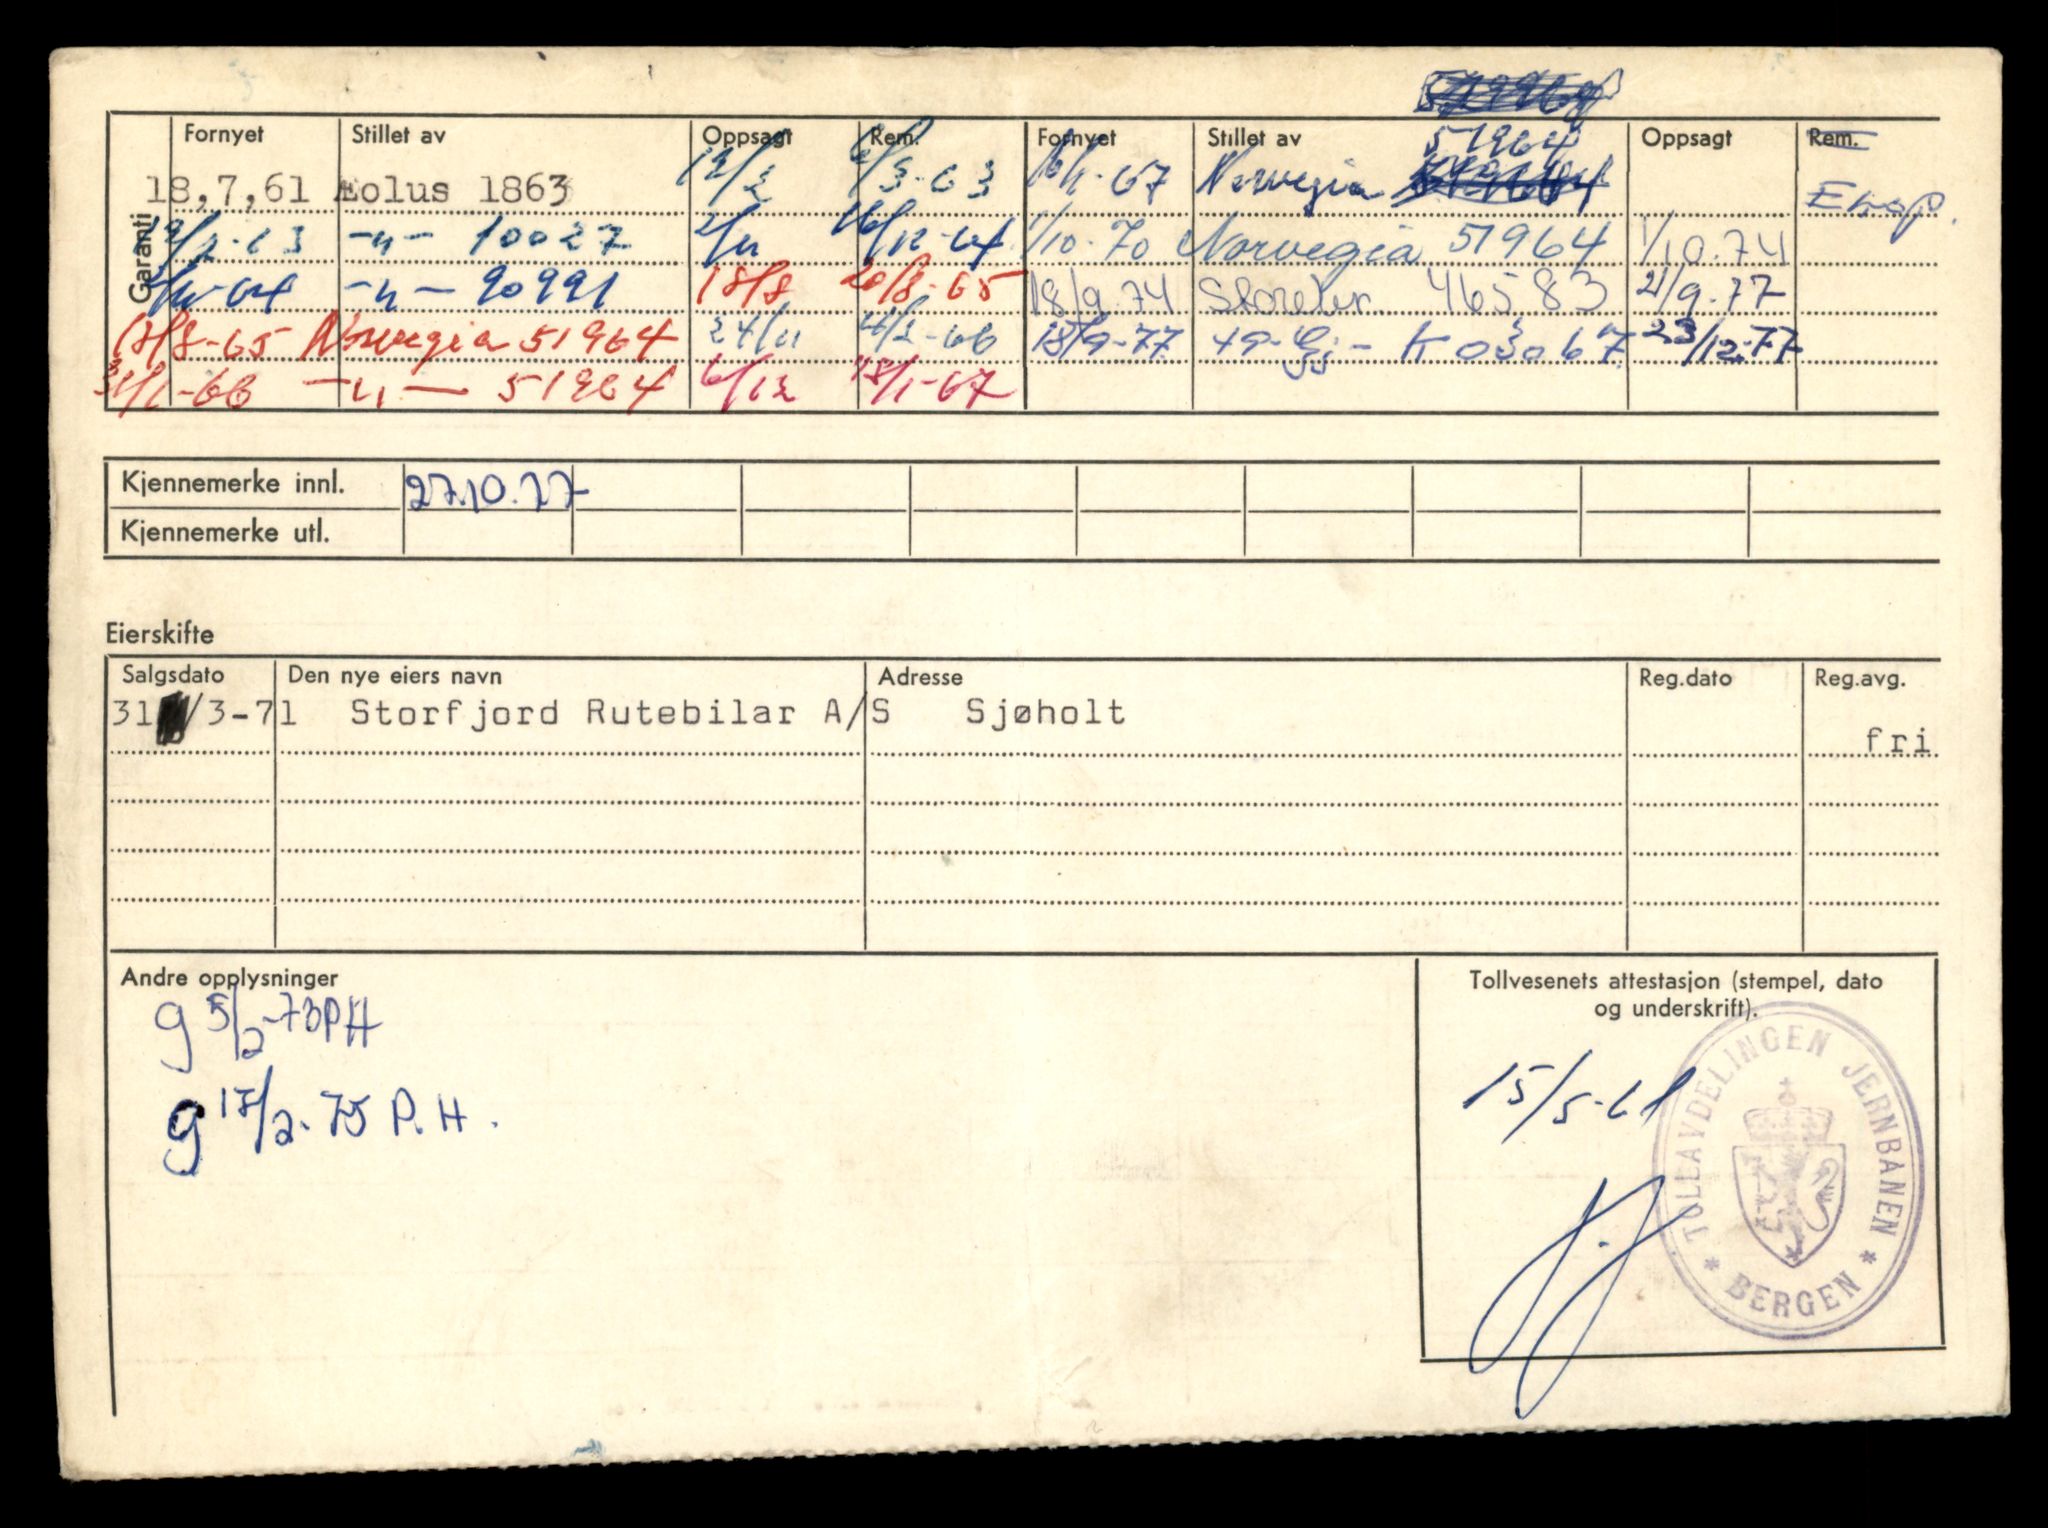 Garanti
Fornyet Stillet av Oppsagt Rem. Fornyet Stillet av 51964 Oppsagt Rem.
18,7,61 Æolus 1863 12/2 6/3-63 16/1-67 Norvegia Eksp.
12/2-63 -"- 10027 2/11 16/12-64 1/10-70 Norvegia 51964 1/10.74
2/11-64 -"- 90991 18/8 20/8-65 18/9.74 Storebr. 46583 21/9-77
18/8-65 Norvegia 51964 24/11 -66 15/9-77 K 03067 23/12-77
31/1-66 -"- 51964 6/12 18/1-67
Kjennemerke innl. 27.10.77
Kjennemerke utl.
Eierskifte
Salgsdato Den nye eiers navn Adresse Reg.dato Reg.avg.
31/3-71 Storfjord Rutebilar A/S Sjøholt
fri
Andre opplysninger
g 5/2-73 PH
g 17/2-75 P.H.
Tollvesenets attestasjon (stempel, dato
og underskrift).
15/5-61
TOLLAVDELINGEN JERNBANEN
* BERGEN *